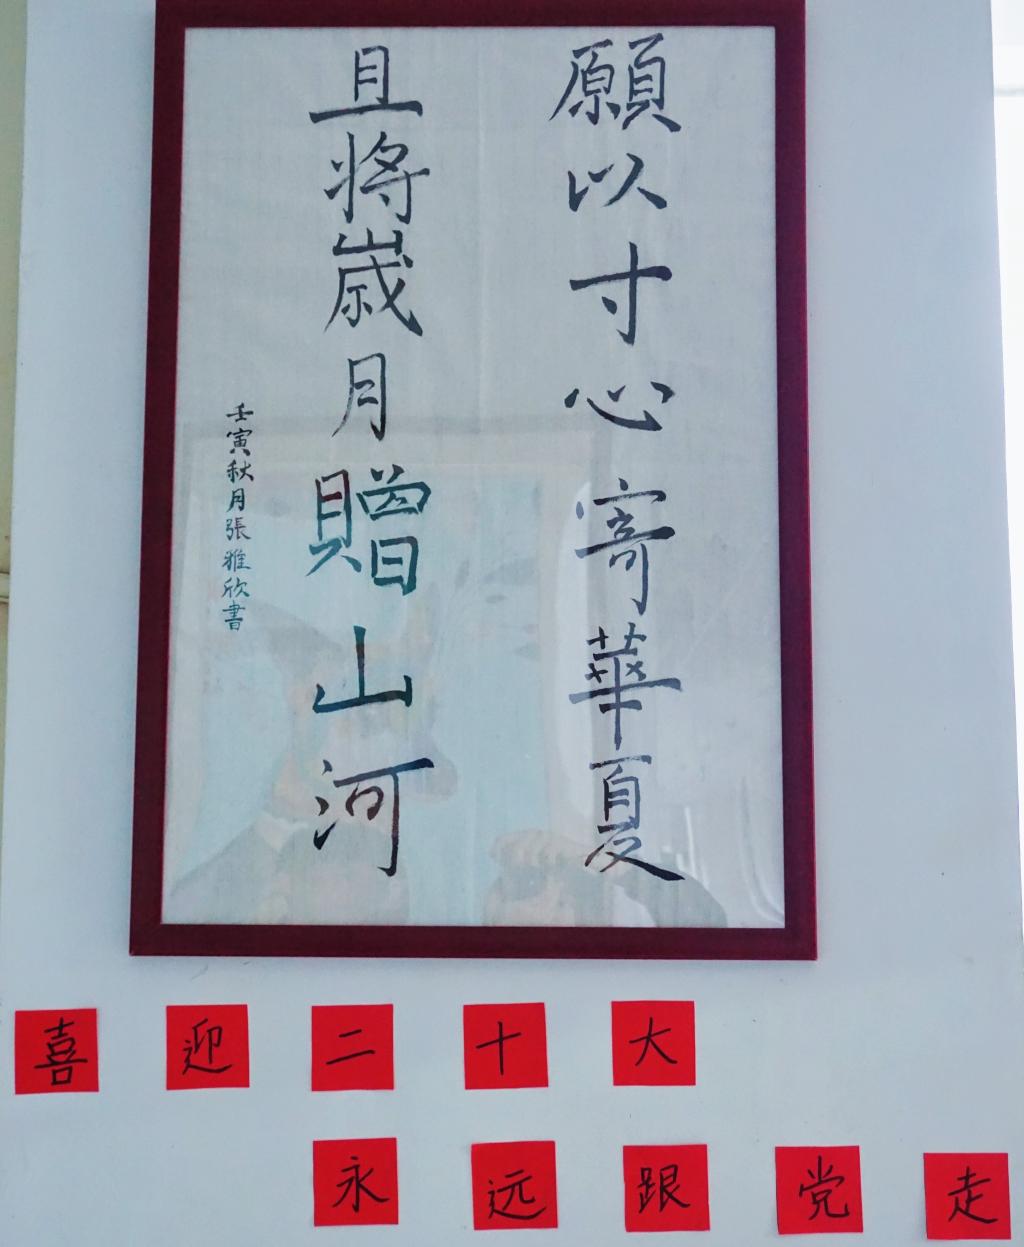 願以寸心寄華夏
且將歳月贈山河
壬寅秋月張雅欣書
喜迎二十大
永远跟党走